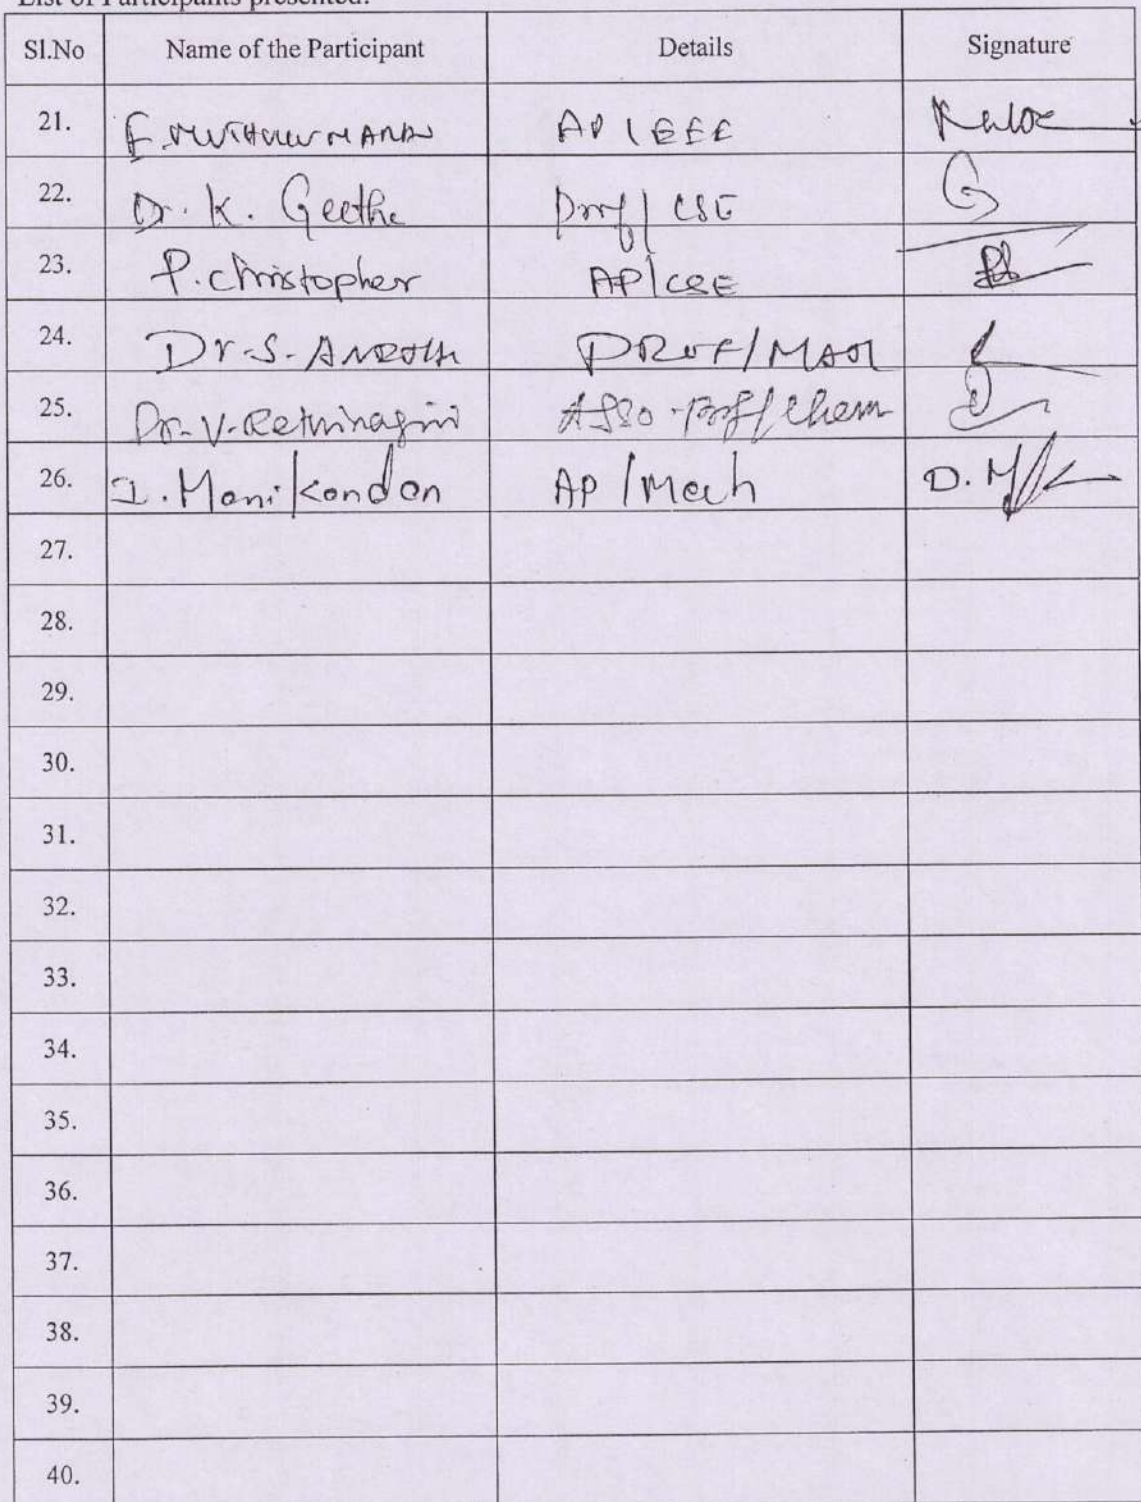 List of Participants presented.
Sl.No Name of the Participant Details Signature
21. E. MUTHUKUMARAN AP / EEE
22. Dr. K. Geetha Prof / CSE G
23. P. Christopher AP/CSE
24. Dr. S. PROF/
25. Dr. V. Asso. Prof / Chem
26. Manikandan AP / Mech D. M
27.
28.
29.
30.
31.
32.
33.
34.
35.
36.
37.
38.
39.
40.